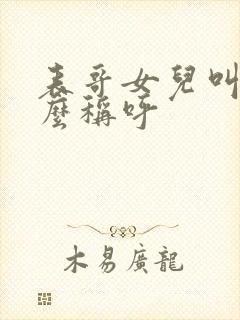 表哥女兒叫
麼稱呼
木易廣龍